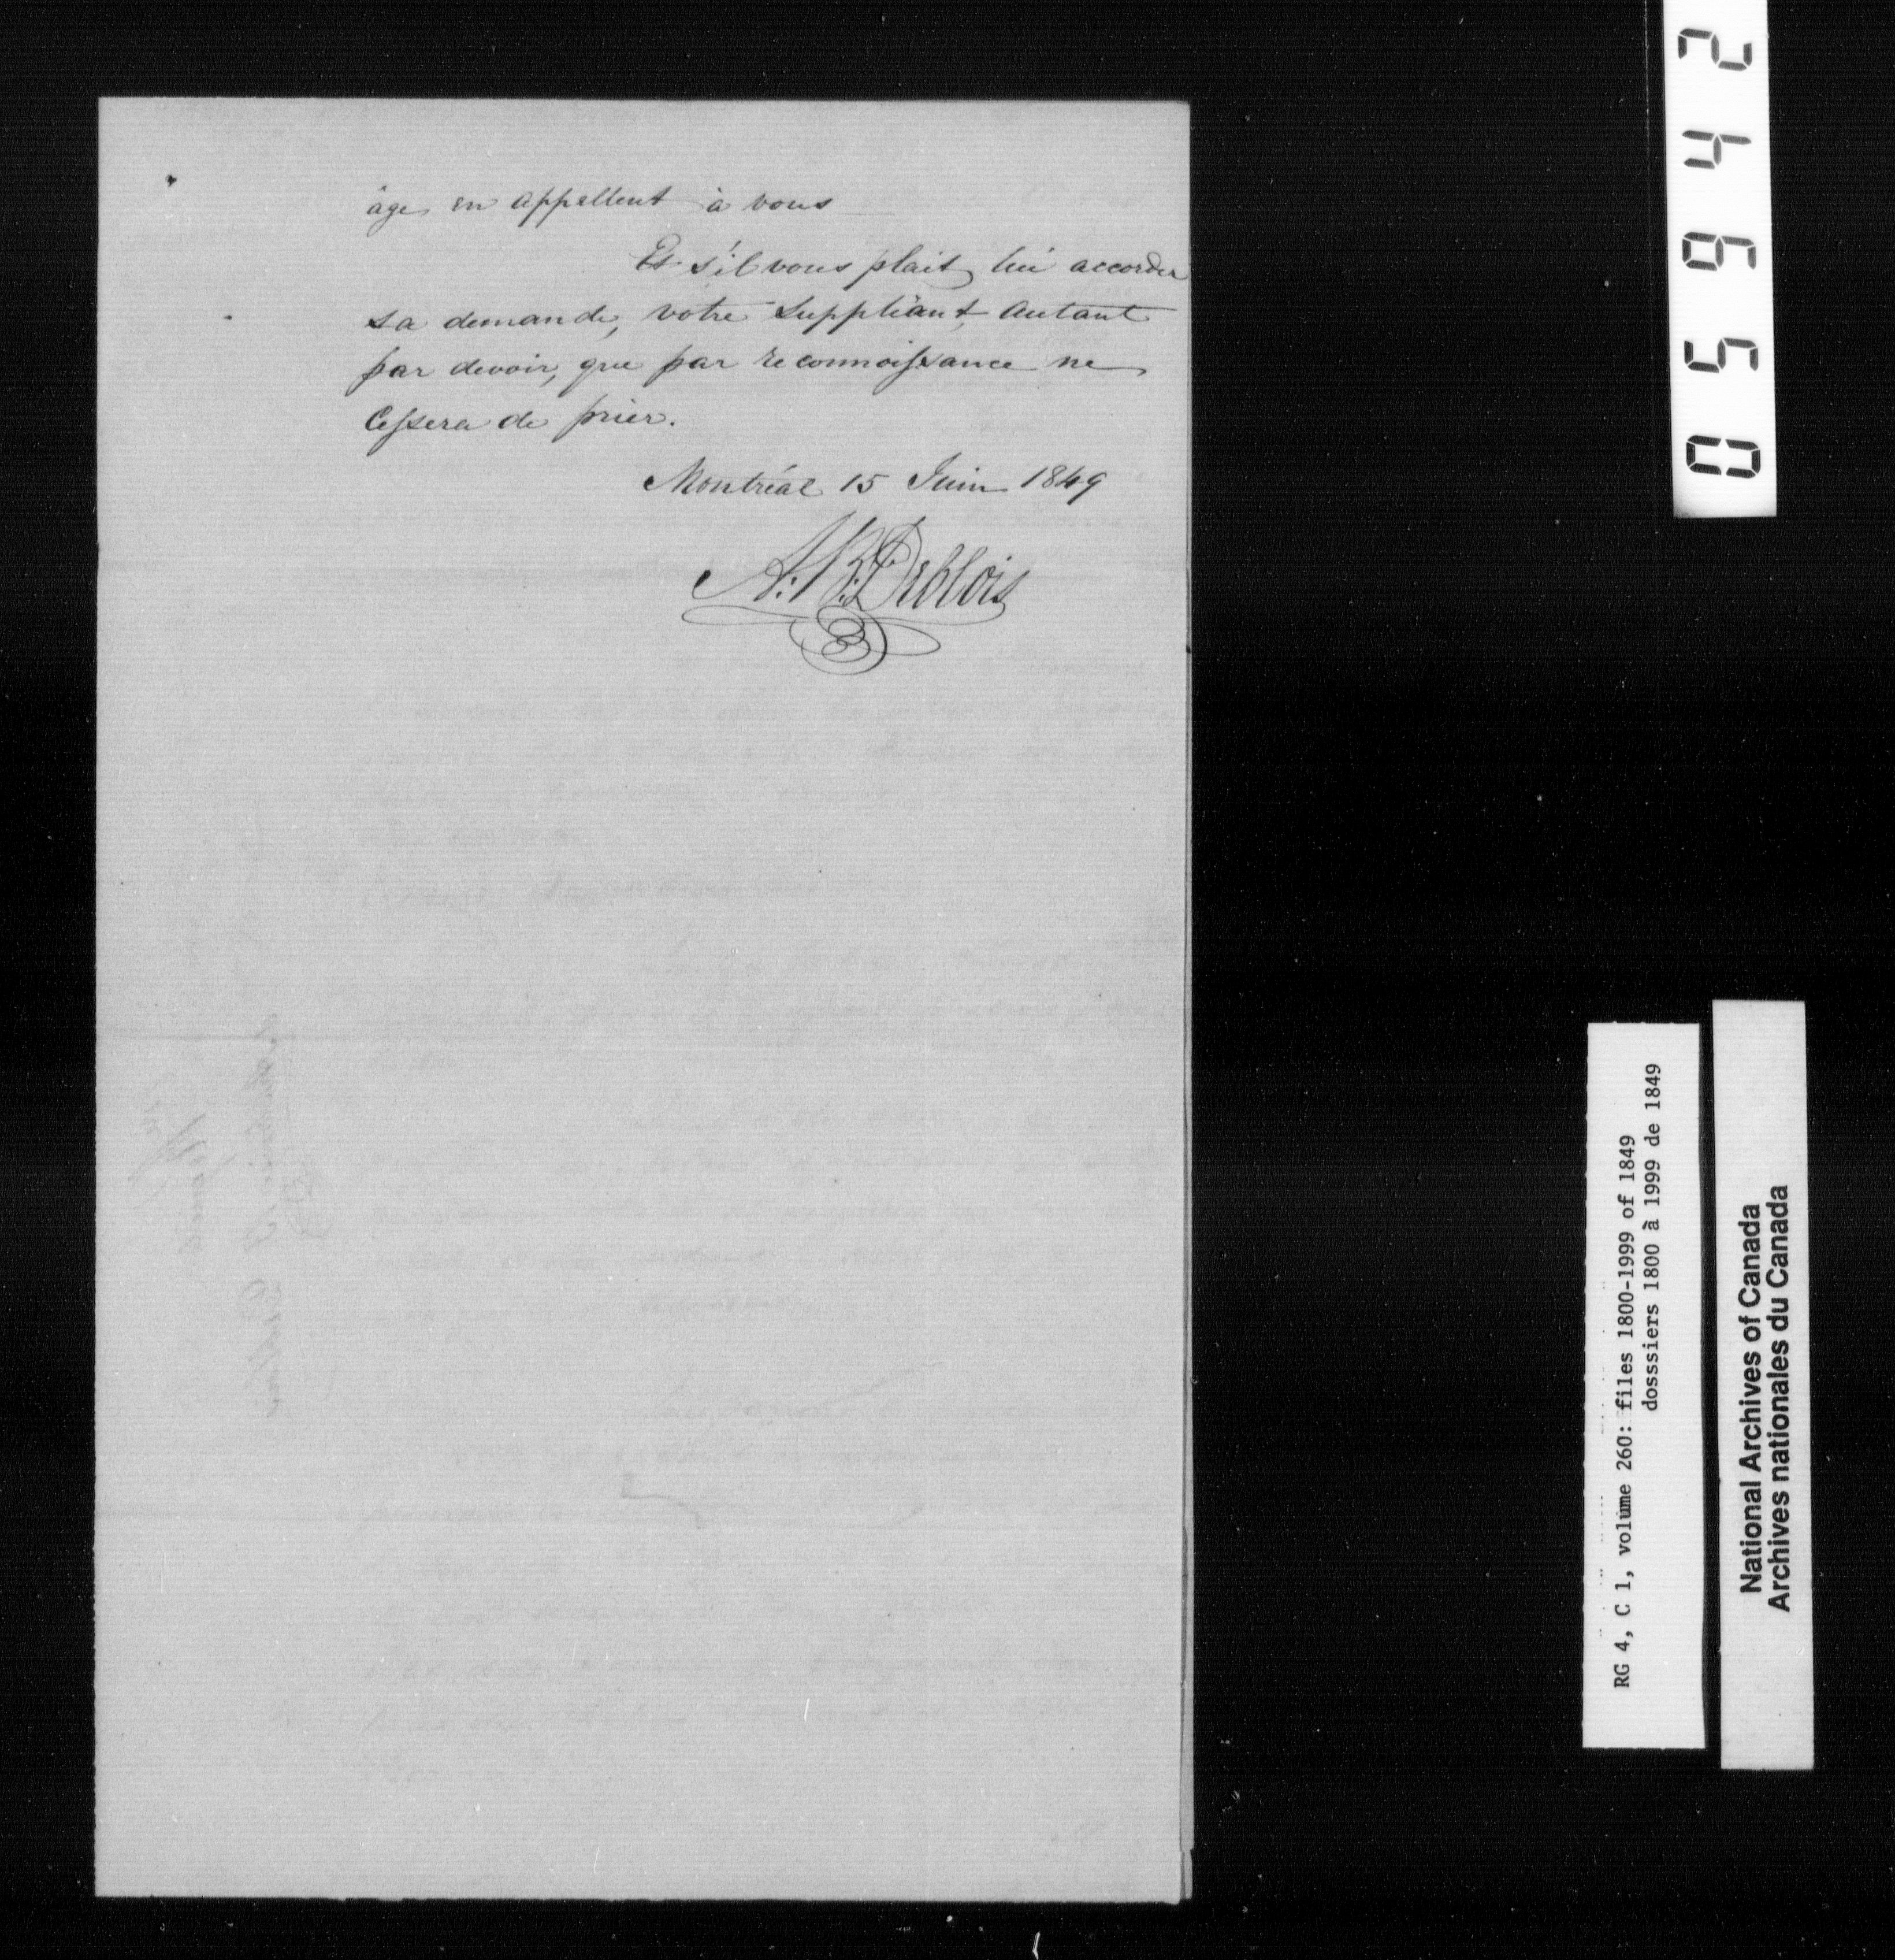 âge en appellent à vous
Et s'il vous plait lui accorder
sa demande, votre suppliant, autant
par devoir, que par reconnoissance ne
cessera de prier.
Montréal 15 Juin 1849
A. B. Deblois
05942
RG 4, C 1, volume 260: files 1800-1999 of 1849
dosssiers 1800 à 1999 de 1849
National Archives of Canada
Archives nationales du Canada